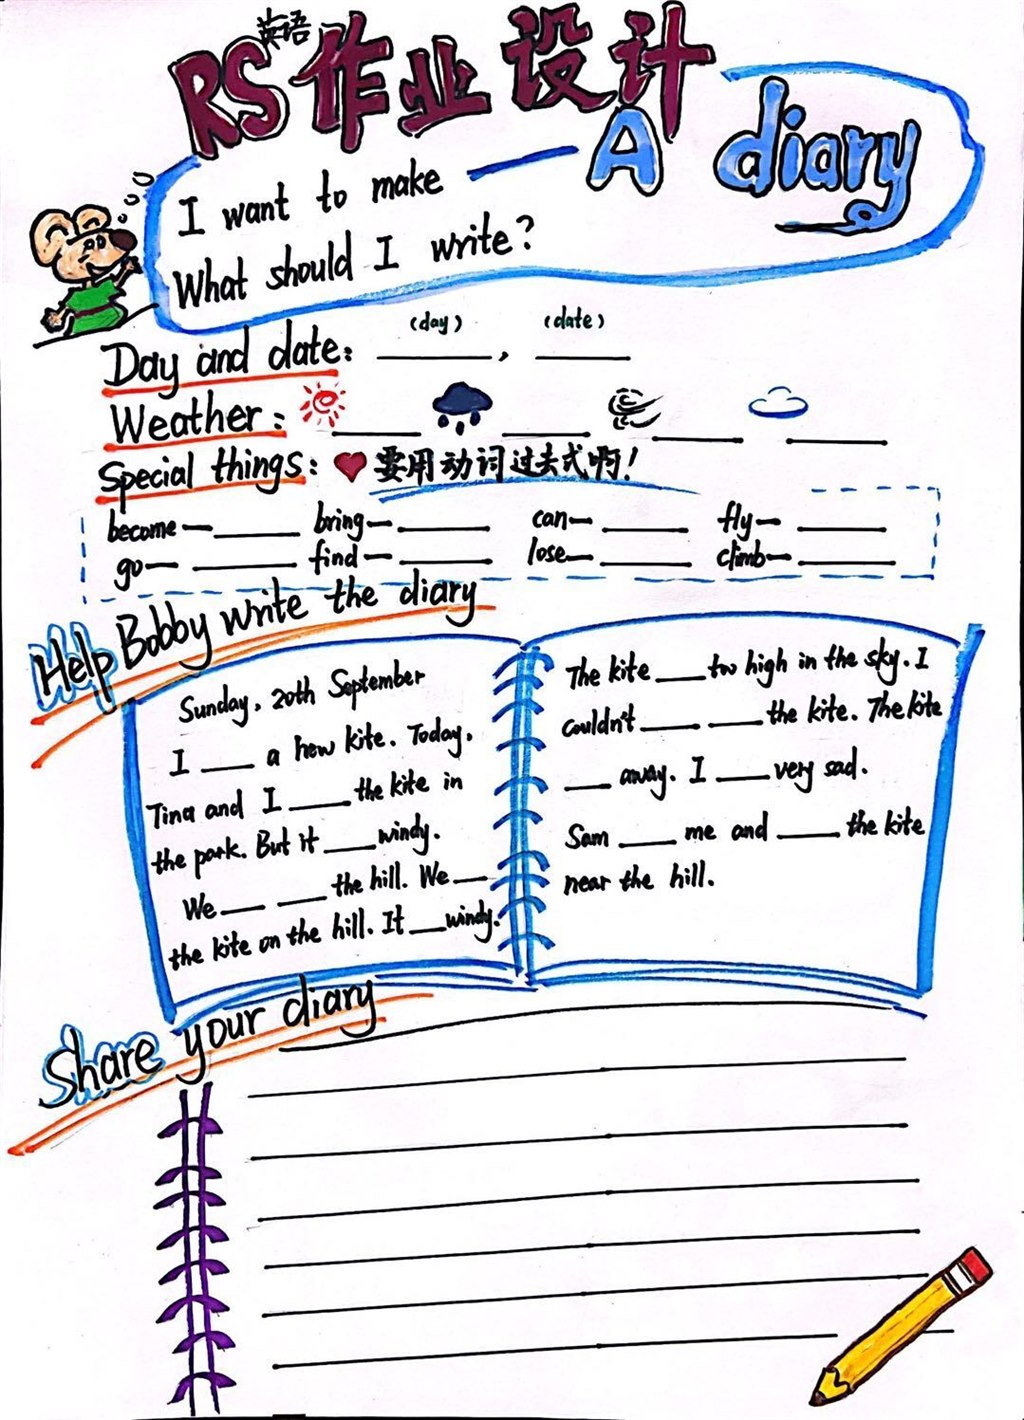 RS英语作业设计
I want to make — A diary
What should I write?
(day) (date)
Day and date: ______, ______
Weather: ______ ______ ______ ______
Special things: ♥ 要用动词过去式啊!
become—______ bring—______ can—______ fly—______
go—______ find—______ lose—______ climb—______
Help Bobby write the diary
Sunday, 20th September
I ___ a new kite. Today,
Tina and I ___ the kite in
the park. But it ___ windy.
We ___ ___ the hill. We ___
the kite on the hill. It ___ windy.
The kite ___ too high in the sky. I
couldn't ___ ___ the kite. The kite
___ away. I ___ very sad.
Sam ___ me and ___ the kite
near the hill.
Share your diary